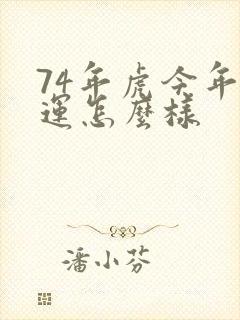 74年虎今年
運怎麼樣
潘小芬